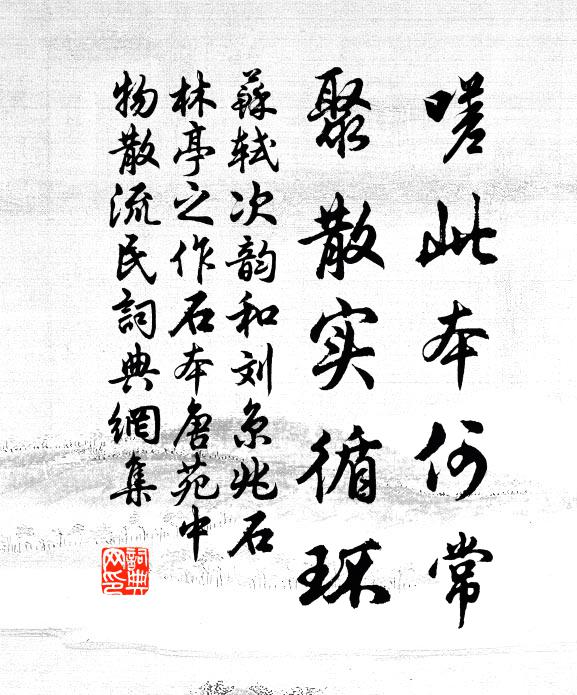 嗟此本何常
聚散实循环
蘇轼次韵和刘京兆石
林亭之作石本唐苑中
物散流民詞典網集
詞典网印